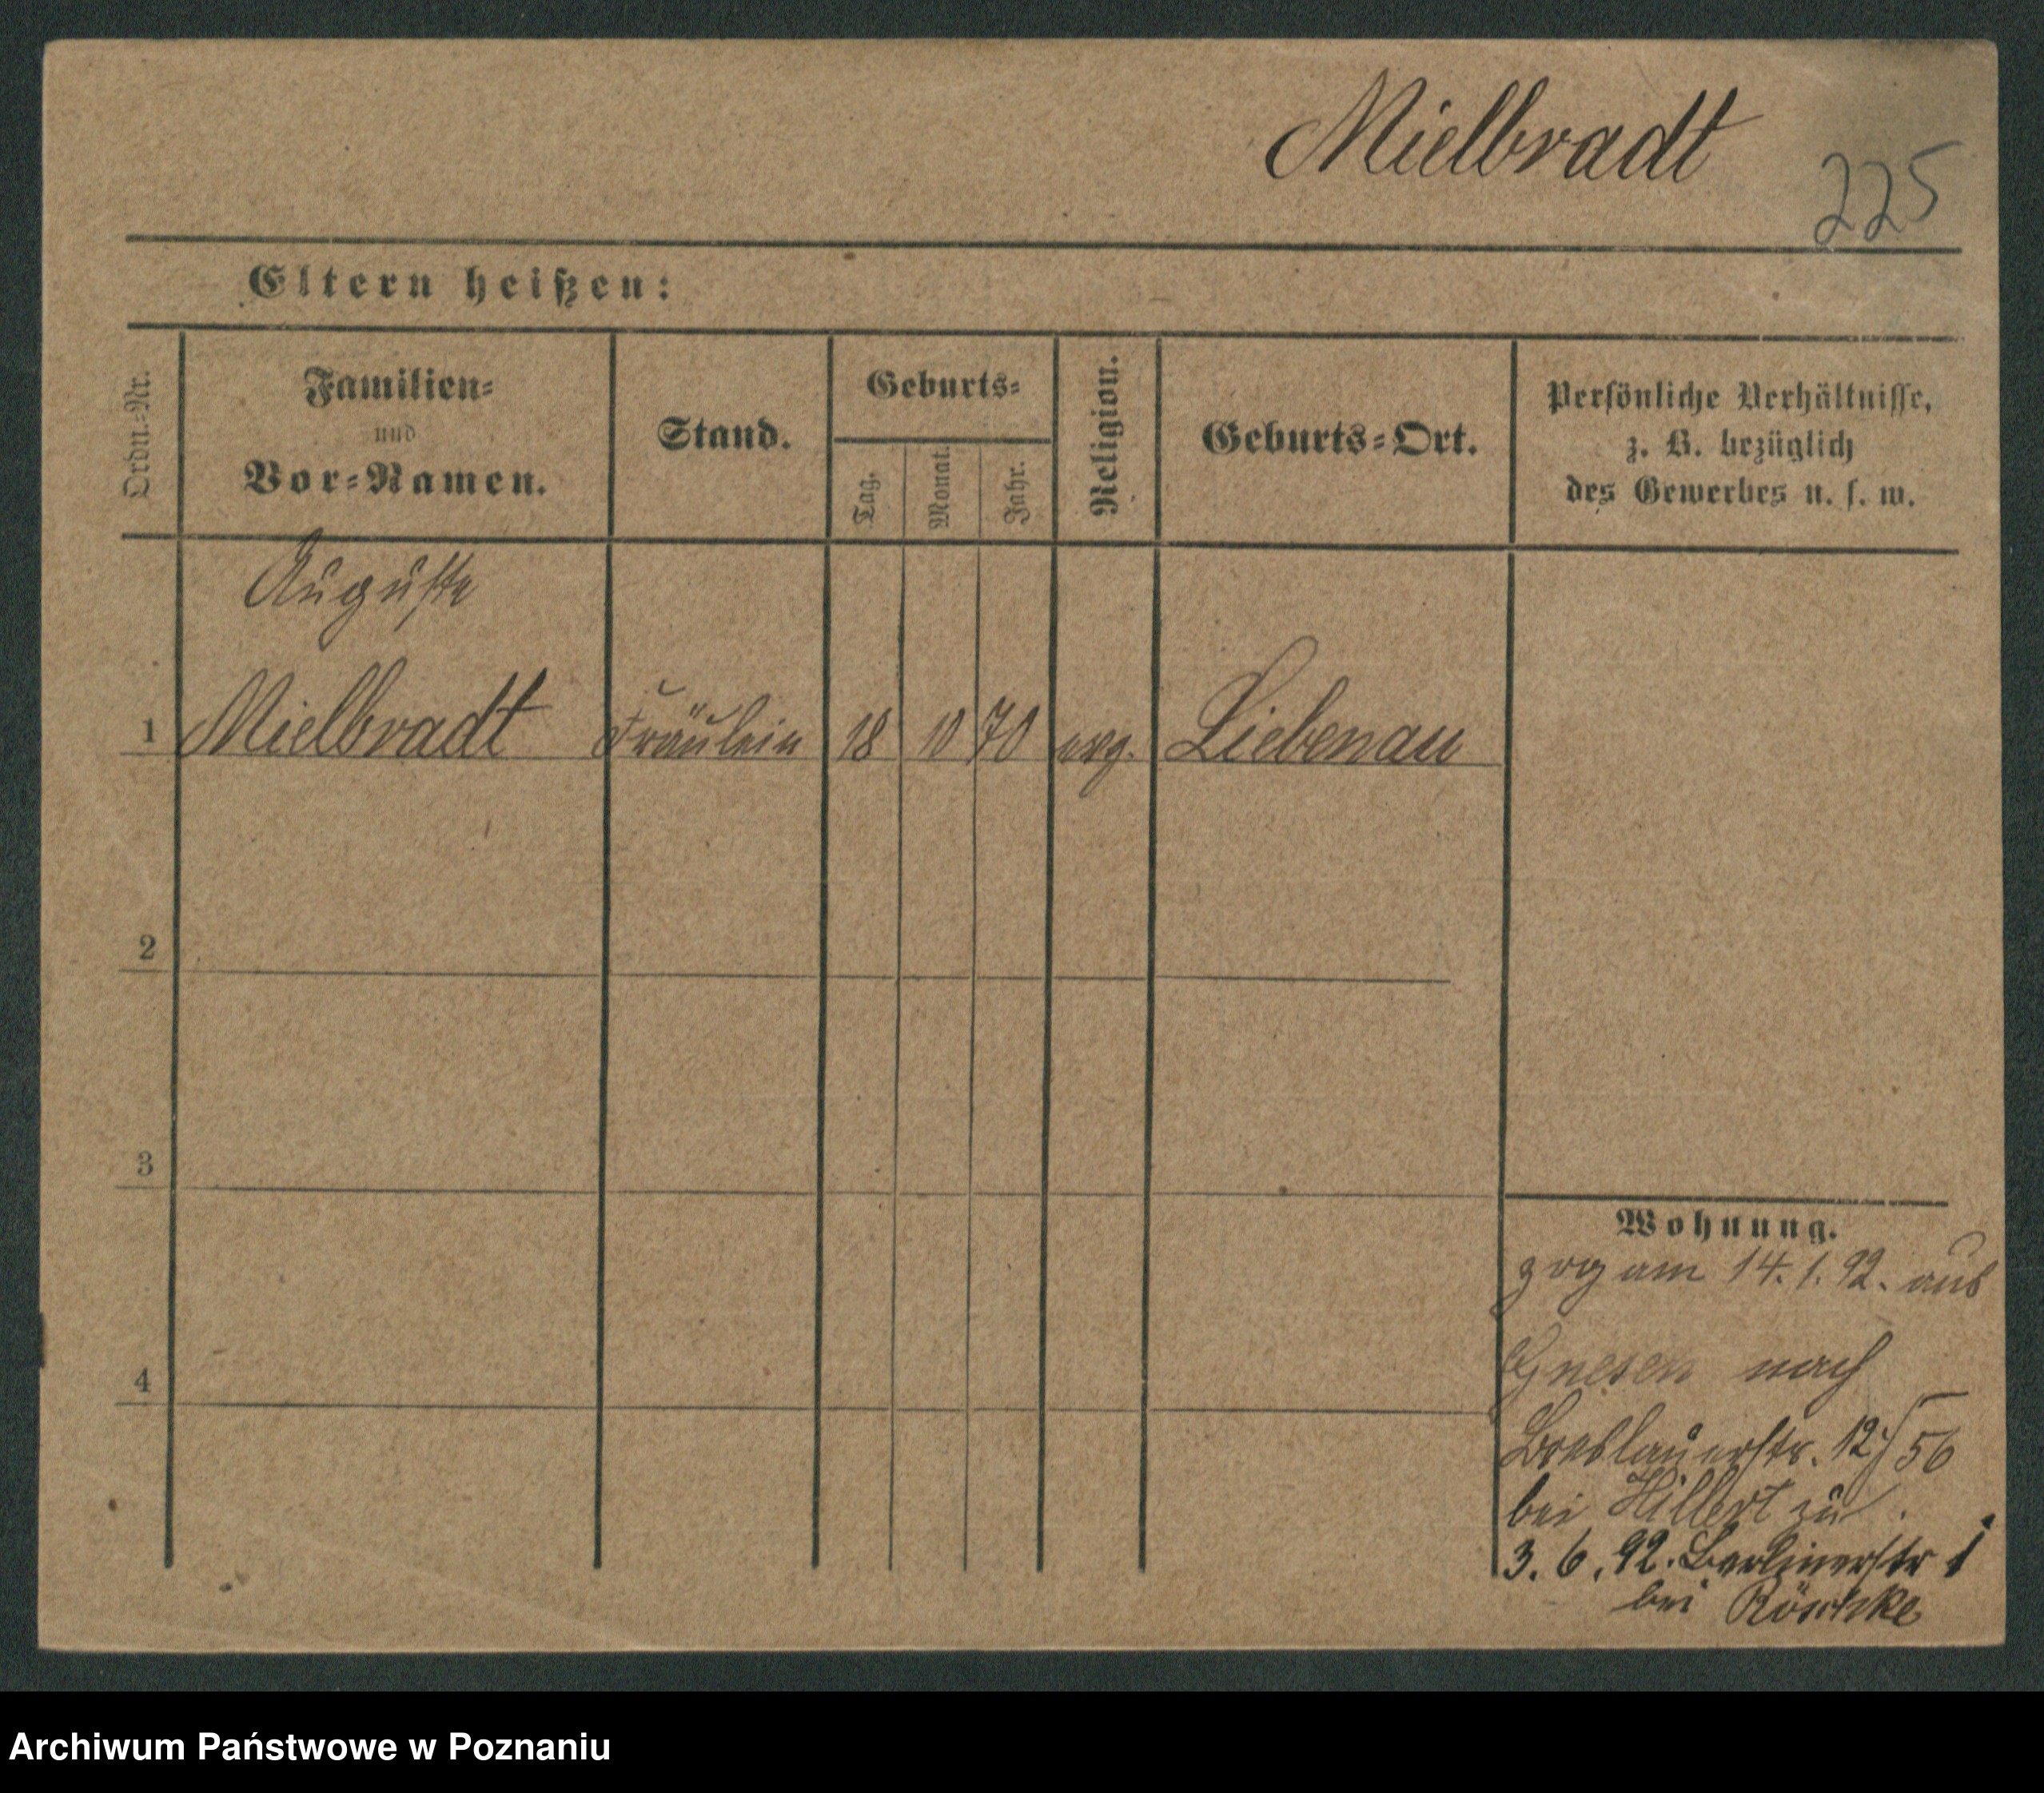 Mielbradt
225
Eltern heißen:
Ordn.-Nr.
Familien-
und
Vor-Namen.
Stand.
Geburts-
Tag.
Monat.
Jahr.
Religion.
Geburts-Ort.
Persönliche Verhältnisse,
z. B. bezüglich
des Gewerbes u. s. w.
Auguste
1 Mielbradt Fräulein 18 10 70 evg. Liebenau
2
3
4
Wohnung.
zog am 14.1.92. aus
Gnesen nach
Breslauerstr. 12/56
bei Hillert zu.
3.6.92. Berlinerstr 1
bei
Archiwum Państwowe w Poznaniu